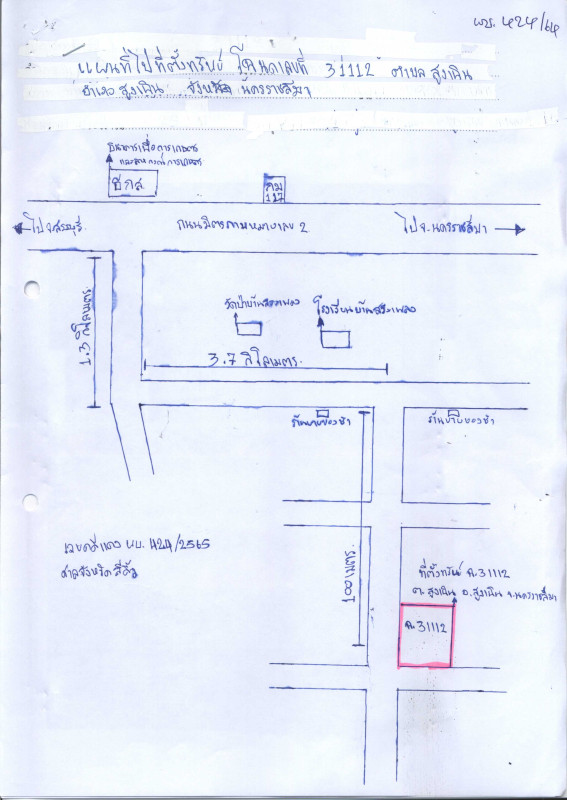 ผบ. 424/64
แผนที่ไปที่ตั้งทรัพย์ โฉนดเลขที่ 31112 ตำบล สูงเนิน
อำเภอ สูงเนิน จังหวัด นครราชสีมา
ธนาคารเพื่อการเกษตร
และสหกรณ์การเกษตร
ธกส.
กม
127
ไปจ.สระบุรี
ถนนมิตรภาพหมายเลข 2
ไป จ.นครราชสีมา
1.3 กิโลเมตร.
โรงเรียนบ้านสลักเพลง
3.7 กิโลเมตร.
ร้านขายของชำ
ร้านขายของชำ
100 เมตร.
เลขคดีแดง ผบ. 424/2565
ศาลจังหวัดสีคิ้ว
ที่ตั้งทรัพย์ ฉ.31112
ต.สูงเนิน อ.สูงเนิน จ.นครราชสีมา
ฉ.31112